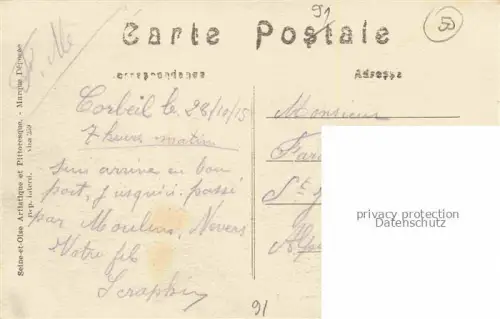 91
50
F. Me
Carte Postale
Correspondance
Adresse
Seine-et-Oise Artistique et Pittoresque. - Marque Déposée
Rep. Interd.
Corbeil le 28/10/15
7 heures matin
suis arrivé en bon
port, jusqu'ici passé
par Moulins, Nevers
Votre fils
Seraphin
Monsieur
Far
St
Alp
privacy protection
Datenschutz
91